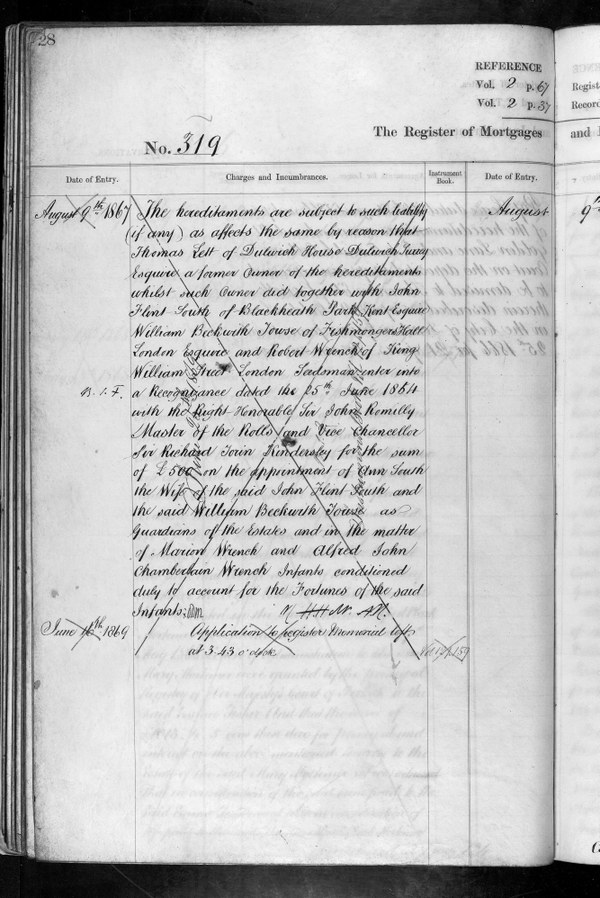 28
REFERENCE
Vol. 2 p. 67
Vol. 2 p. 37
No. 319
The Register of Mortgages
and
Date of Entry.
Charges and Incumbrances.
Instrument Book.
Date of Entry.
August 9th 1867
The hereditaments are subject to such liability
(if any) as affects the same by reason that
Thomas Lett of Dulwich House Dulwich Surrey
Esquire a former Owner of the hereditaments
whilst such Owner did together with John
Flint South of Blackheath Park Kent Esquire
William Beckwith Towse of Fishmongers Hall
London Esquire and Robert Wrench of King
William Street London Seedsman enter into
a Recognizance dated the 25th June 1864
with the Right Honorable Sir John Romilly
Master of the Rolls and Vice Chancellor
Sir Richard Torin Kindersley for the sum
of £500 on the appointment of Ann South
the Wife of the said John Flint South and
the said William Beckwith Towse as
Guardians of the Estates and in the matter
of Marion Wrench and Alfred John
Chamberlain Wrench Infants conditioned
duly to account for the Fortunes of the said
Infants;
B. I. F.
August
9th
June 16th 1869
Application to register Memorial left
at 3.43 o'clock